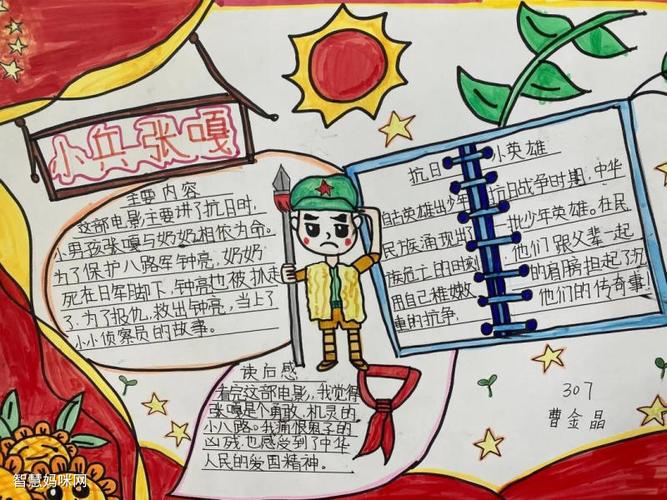 小兵张嘎
主要内容
这部电影主要讲了抗日时,
小男孩张嘎与奶奶相依为命。
为了保护八路军钟亮,奶奶
死在日军脚下,钟亮也被抓走
了.为了报仇,救出钟亮,当上了
小小侦察员的故事。
抗日小英雄
自古英雄出少年 抗日战争时期,中华
民族涌现出了一批少年英雄。在民
族危亡的时刻 他们跟父辈一起
用自己稚嫩的肩膀担起了沉
重的抗争, 他们的传奇事
读后感
看完这部电影,我觉得
张嘎是个勇敢、机灵的
小八路。我痛恨鬼子的
凶残,也感受到了中华
人民的爱国精神。
307
曹金晶
智慧妈咪网